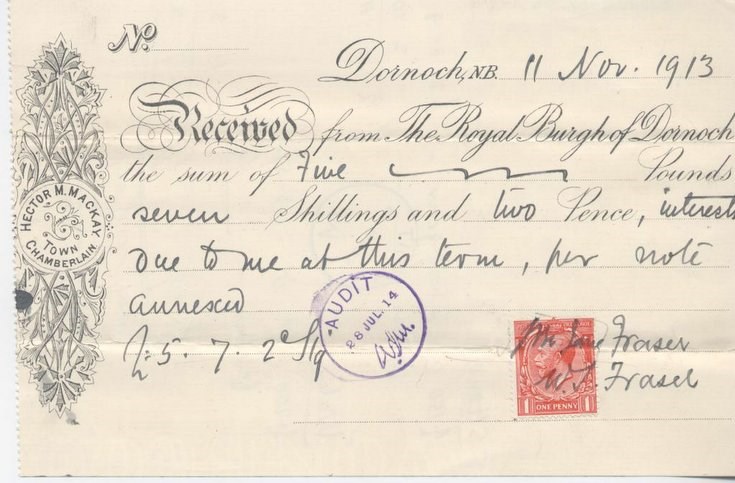 No.
Dornoch, N.B. 11 Nov. 1913
Received from The Royal Burgh of Dornoch
the sum of Five Pounds
seven Shillings and two Pence, interest
due to me at this term, per note
annexed
£5. 7. 2
Fraser
W. S. Fraser
HECTOR M. MACKAY
TOWN
CHAMBERLAIN
AUDIT
28 JUL. 14
ONE PENNY
1 1